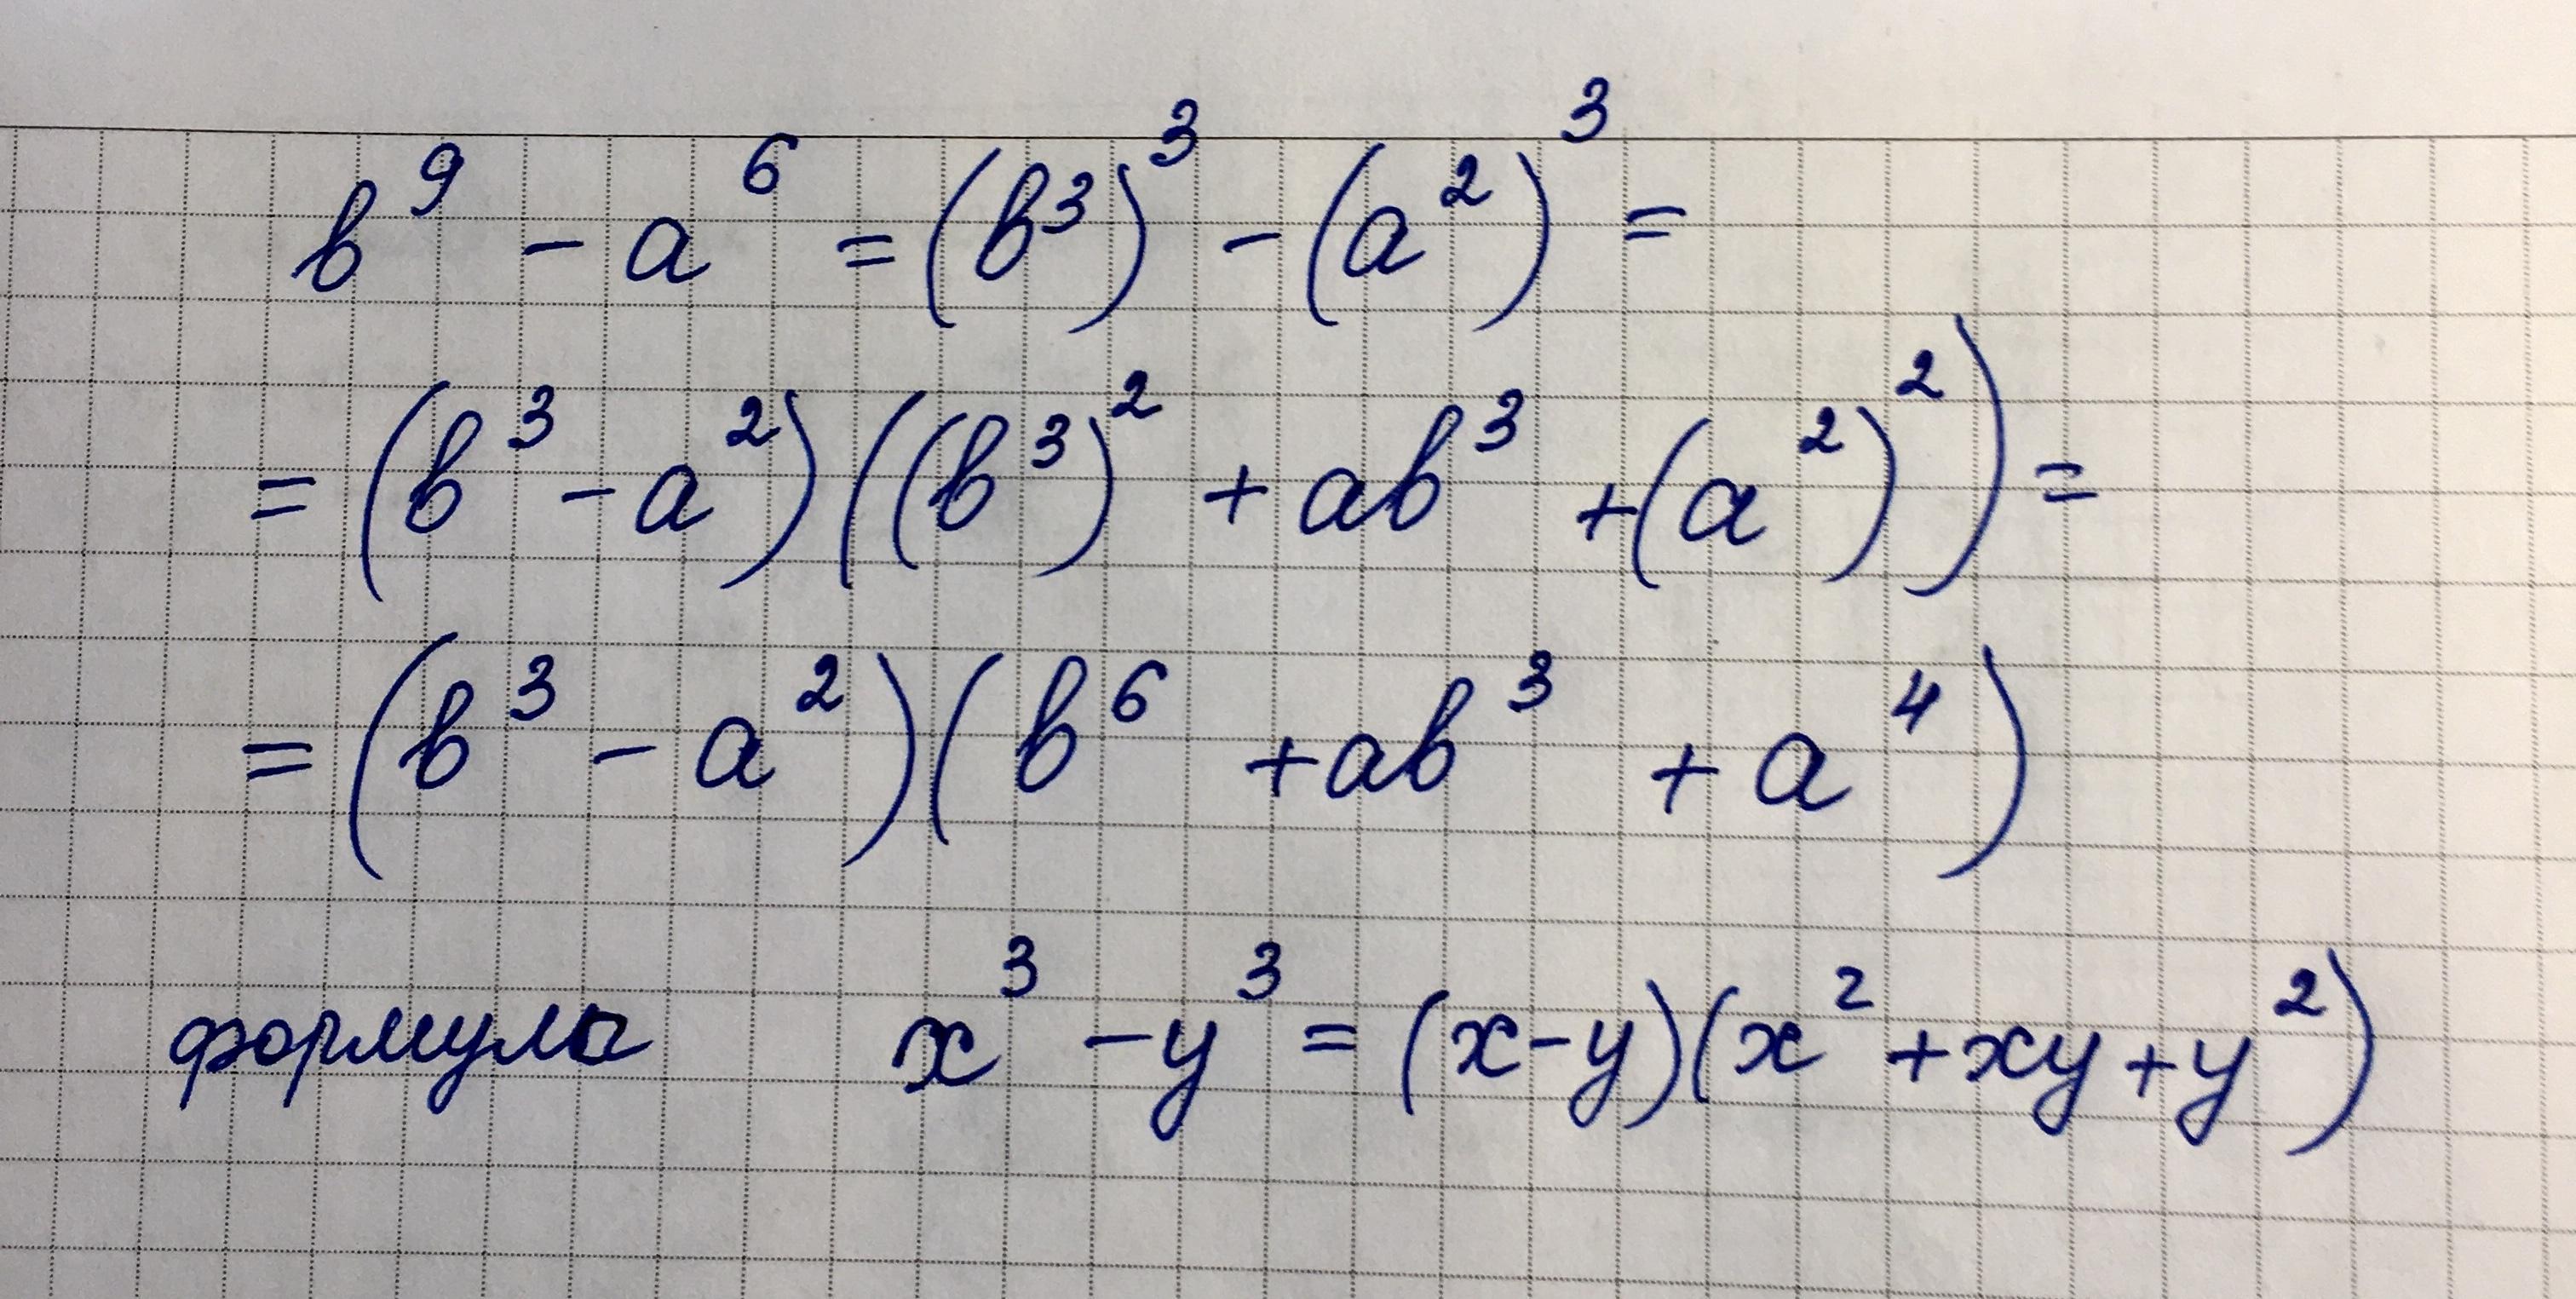 b⁹ - a⁶ = (b³)³ - (a²)³ =
= (b³ - a²)((b³)² + ab³ + (a²)²) =
= (b³ - a²)(b⁶ + ab³ + a⁴)
формула x³ - y³ = (x - y)(x² + xy + y²)